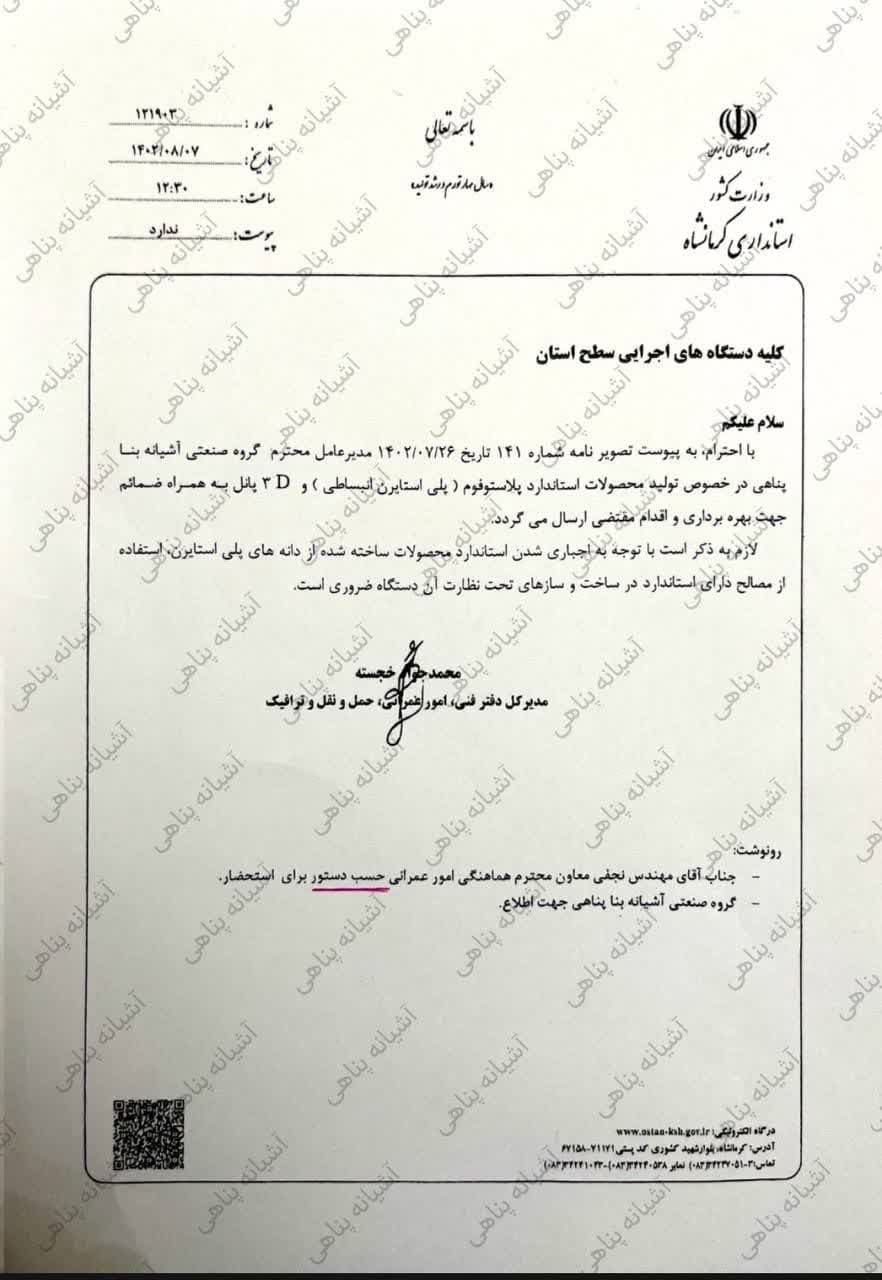 باسمه تعالی
«سال مهار تورم و رشد تولید»
جمهوری اسلامی ایران
وزارت کشور
استانداری کرمانشاه
شماره : ۱۲۱۹۰۳
تاریخ: ۱۴۰۲/۰۸/۰۷
ساعت: ۱۲:۳۰
پیوست: ندارد
کلیه دستگاه های اجرایی سطح استان
سلام علیکم
با احترام، به پیوست تصویر نامه شماره ۱۴۱ تاریخ ۱۴۰۲/۰۷/۲۶ مدیرعامل محترم گروه صنعتی آشیانه بنا
پناهی در خصوص تولید محصولات استاندارد پلاستوفوم ( پلی استایرن انبساطی ) و ۳ D پانل به همراه ضمائم
جهت بهره برداری و اقدام مقتضی ارسال می گردد.
لازم به ذکر است با توجه به اجباری شدن استاندارد محصولات ساخته شده از دانه های پلی استایرن، استفاده
از مصالح دارای استاندارد در ساخت و سازهای تحت نظارت آن دستگاه ضروری است.
محمدجواد خجسته
مدیرکل دفتر فنی، امور عمرانی، حمل و نقل و ترافیک
رونوشت:
- جناب آقای مهندس نجفی معاون محترم هماهنگی امور عمرانی حسب دستور برای استحضار.
- گروه صنعتی آشیانه بنا پناهی جهت اطلاع.
درگاه الکترونیکی: www.ostan-ksh.gov.ir
آدرس: کرمانشاه، بلوارشهید کشوری کد پستی ۷۱۱۷۱-۶۷۱۵۸
تماس:۳-۳۴۲۳۷۰۵۱(۰۸۳) نمابر ۳۴۲۴۰۵۳۸(۰۸۳)-۳۴۲۴۱۰۴۳(۰۸۳)
آشیانه پناهی